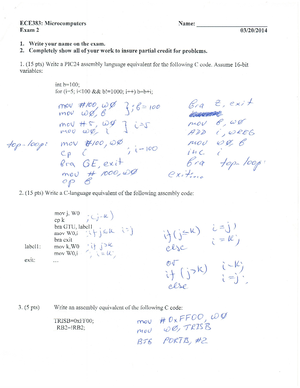 ECE383: Microcomputers Name:
Exam 2 03/20/2014
1. Write your name on the exam.
2. Completely show all of your work to insure partial credit for problems.
1. (15 pts) Write a PIC24 assembly language equivalent for the following C code. Assume 16-bit
variables:
int b=100;
for (i=5; i<100 && b!=1000; i++) b=b+i;
mov #100, W0 ; b=100 bra Z, exit
mov W0, b mov b, W0
mov #5, W0 ; i=5 ADD i, WREG
mov W0, i mov W0, b
top_loop: mov #100, W0 inc i
cp i ; i-100 bra top_loop
bra GE, exit exit:
mov #1000, W0
cp b
2. (15 pts) Write a C-language equivalent of the following assembly code:
mov j, W0
cp k
bra GTU, label1
mov W0,i
bra exit
label1: mov k,W0
mov W0,i
exit: ...
if(j<k) i=j;
else i=k;
or
if(j>k) i=k;
else i=j;
3. (5 pts) Write an assembly equivalent of the following C code:
TRISB=0xFF00; mov #0xFF00, W0
mov W0, TRISB
_RB2=!RB2; BTG PORTB, #2